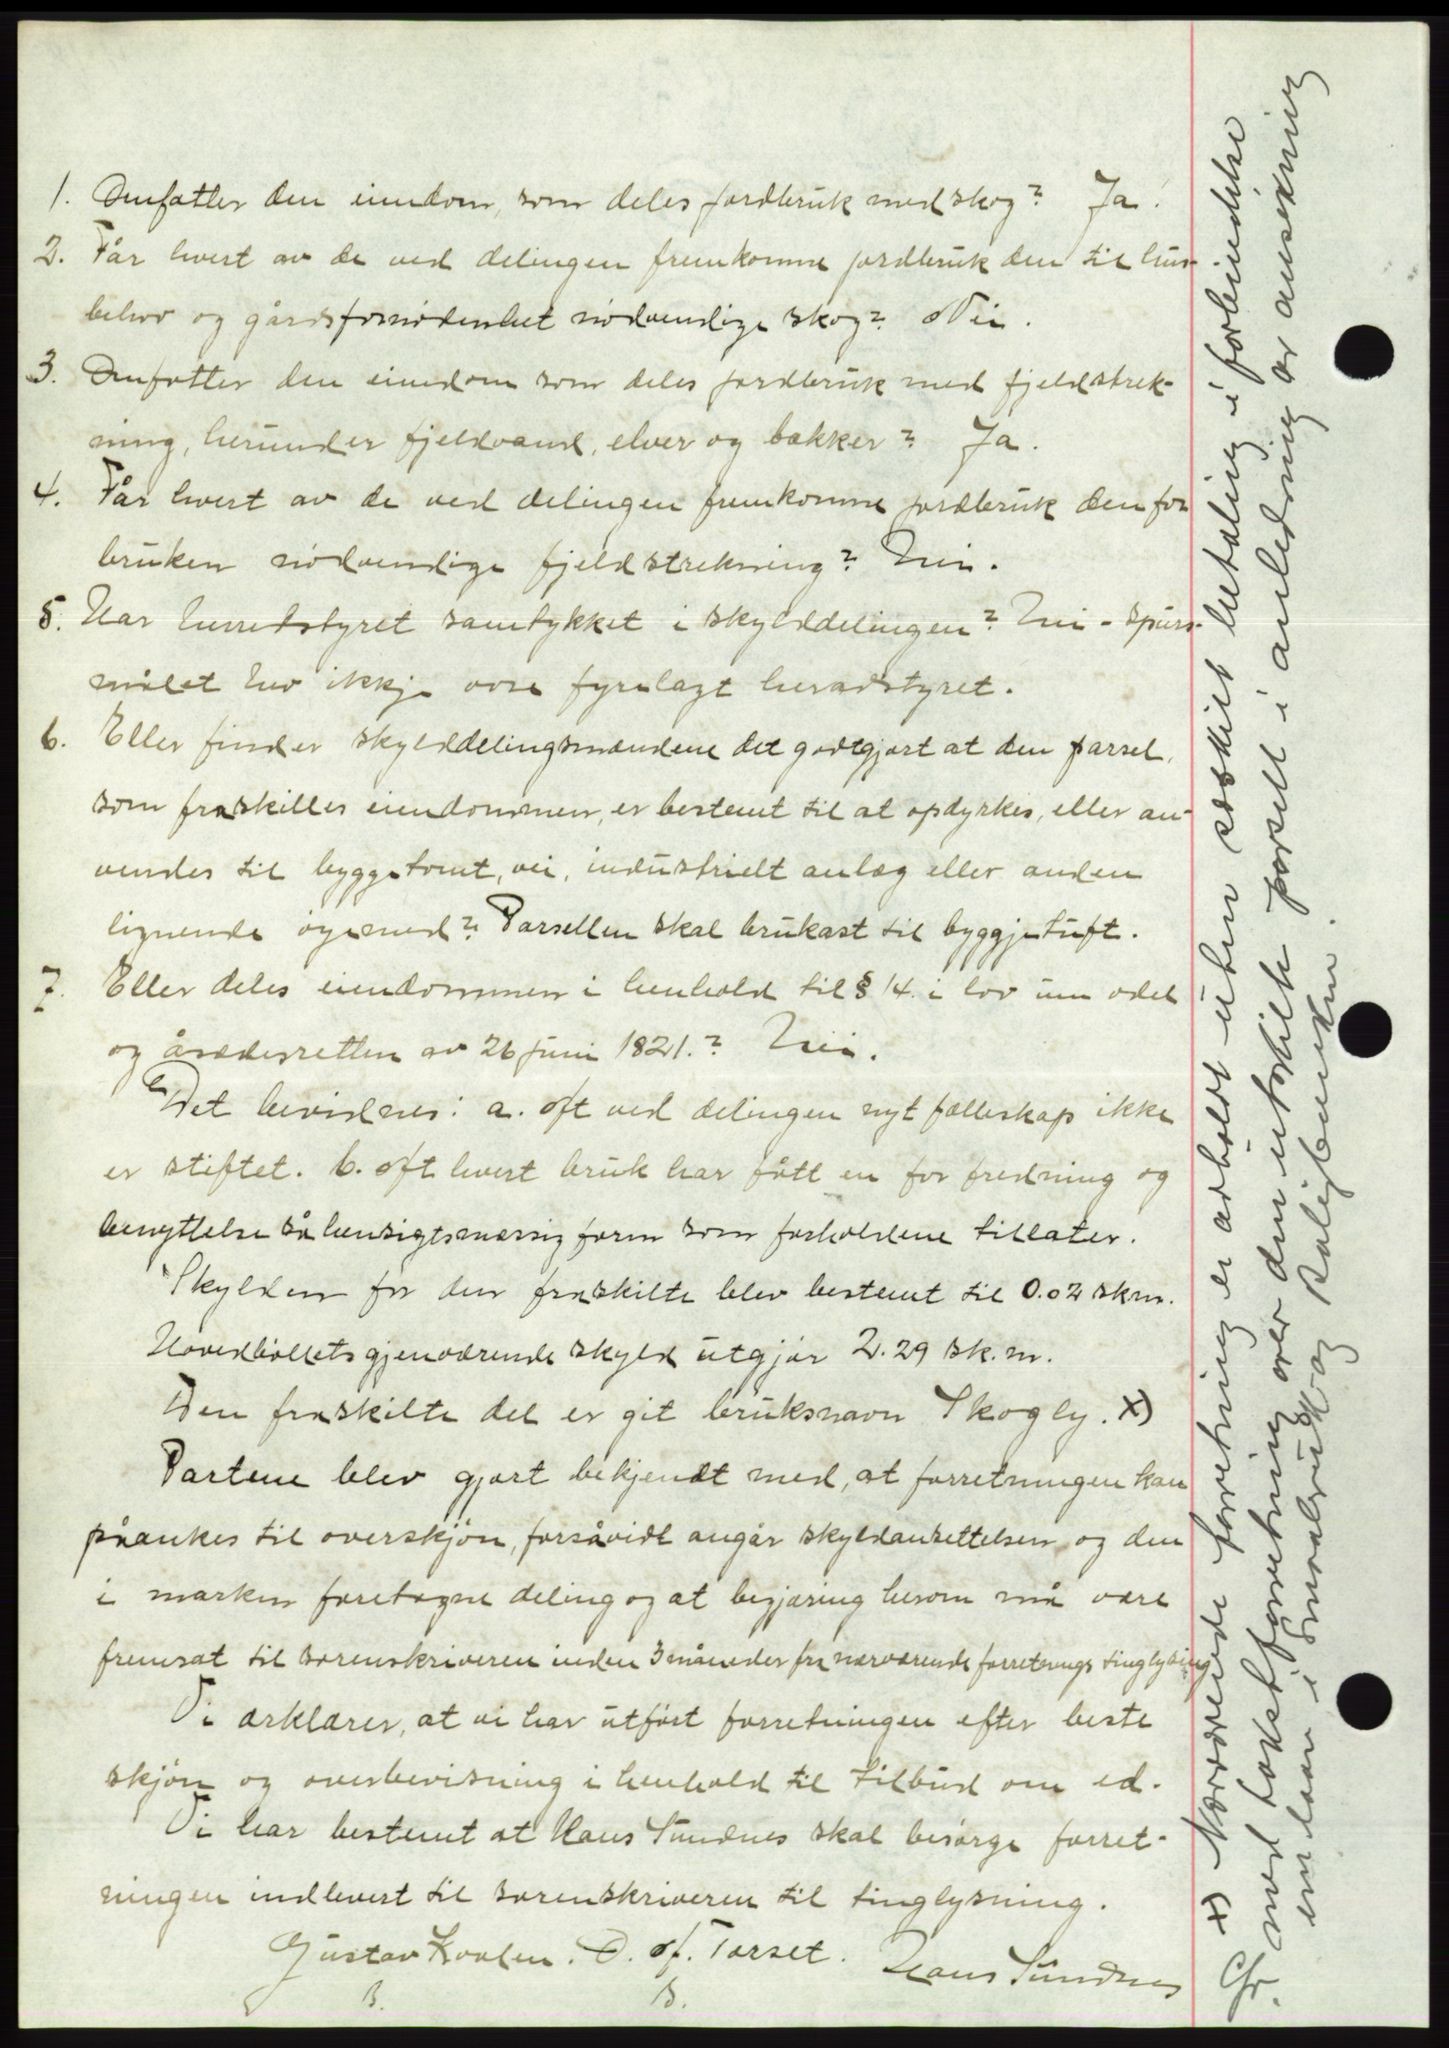 1. Omfatter den eiendom, som deles jordbruk med skog? Ja!
2. Får hvert av de ved delingen fremkomne jordbruk den til hus-
behov og gårdsfornødenhet nødvendige skog? Nei.
3. Omfatter den eiendom som deles jordbruk med fjeldstrek-
ning, herunder fjeldvand, elver og bækker? Ja.
4. Får hvert av de ved delingen fremkomne jordbruk den for
bruken nødvendige fjeldstrekning? Nei.
5. Har herredstyret samtykket i skylddelingen? Nei - spurs-
målet hev ikkje vore fyrelagt heradstyret.
6. Eller finder skylddelingsmændene det godtgjort at den parsel,
som fraskilles eiendommen, er bestemt til at opdyrkes, eller an-
vendes til byggetomt, vei, industrielt anlæg eller anden
lignende øiemed? Parsellen skal brukast til byggjetuft.
7. Eller deles eiendommen i henhold til § 14. i lov um odel
og åsædesretten av 26 juni 1821.? Nei.
Det bevidnes: a. At ved delingen nyt fælleskap ikke
er stiftet. b. At hvert bruk har fått en for fredning og
benyttelse så hensigtsmæssig form som forholdene tillater.
Skylden for den fraskilte blev bestemt til 0.02 skm.
Hovedbølets gjenværende skyld utgjør 2.29 sk.m.
Den fraskilte del er git bruksnavn Skogly. x)
Partene blev gjort bekjendt med, at forretningen kan
påankes til overskjøn, forsåvidt angår skyldansettelsen og den
i marken foretagne deling og at begjæring herom må være
fremsat til sorenskriveren inden 3 måneder fra nærværende forretnings tinglysing
Vi ærklærer, at vi har utført forretningen efter beste
skjøn og overbevisning i henhold til tilbud om ed.
Vi har bestemt at Hans Sundnes skal besørge forret-
ningen indlevert til sorenskriveren til tinglysning.
Gustav Kvalen. D. A. Torset. Hans Sundnes
B. B.
x) Nærværende forretning er avholdt uten særskilt betaling i forbindelse
med takstforretning over den utskilte parsell i anledning av ansøkning
om laan i Smaabruk- og Boligbanken.